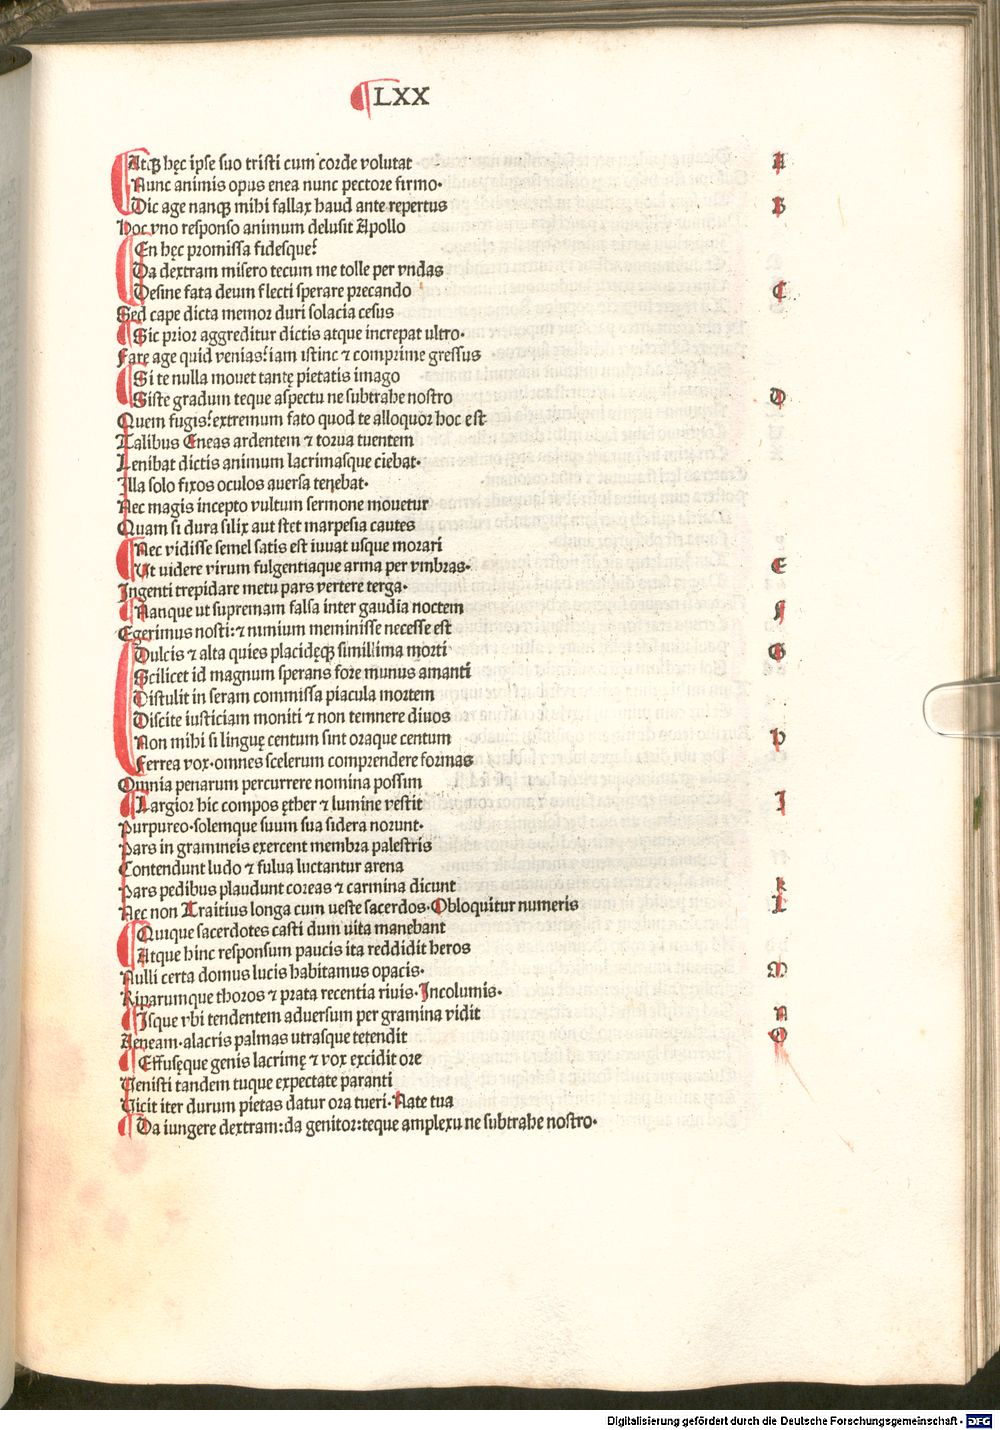 LXX
Atqꝫ hęc ipse suo tristi cum corde volutat A
Nunc animis opus enea nunc pectore firmo·
Dic age nanqꝫ mihi fallax haud ante repertus B
Hoc vno responso animum delusit Apollo
En hęc promissa fidesque?
Da dextram misero tecum me tolle per vndas
Desine fata deum flecti sperare precando C
Sed cape dicta memor duri solacia cesus
Sic prior aggreditur dictis atque increpat ultro·
Fare age quid venias? iam istinc ⁊ comprime gressus
Si te nulla mouet tantę pietatis imago
Siste gradum teque aspectu ne subtrahe nostro D
Quem fugis? extremum fato quod te alloquor hoc est
Talibus Eneas ardentem ⁊ torua tuentem
Lenibat dictis animum lacrimasque ciebat·
Illa solo fixos oculos auersa tenebat·
Nec magis incepto vultum sermone mouetur
Quam si dura silix aut stet marpesia cautes
Nec vidisse semel satis est iuuat usque morari
Ut videre virum fulgentiaque arma per vmbras· E
Ingenti trepidare metu pars vertere terga·
Nanque ut supremam falsa inter gaudia noctem F
Egerimus nosti: ⁊ nimium meminisse necesse est
Dulcis ⁊ alta quies placidęqꝫ simillima morti G
Scilicet id magnum sperans fore munus amanti
Distulit in seram commissa piacula mortem
Discite iusticiam moniti ⁊ non temnere diuos
Non mihi si linguę centum sint oraque centum H
Ferrea vox· omnes scelerum comprendere formas
Omnia penarum percurrere nomina possim
Largior hic compos ęther ⁊ lumine vestit I
Purpureo· solemque suum sua sidera norunt·
Pars in gramineis exercent membra palestris
Contendunt ludo ⁊ fulua luctantur arena
Pars pedibus plaudunt coreas ⁊ carmina dicunt K
Nec non Traitius longa cum ueste sacerdos· Obloquitur numeris L
Quique sacerdotes casti dum uita manebant
Atque hinc responsum paucis ita reddidit heros
Nulli certa domus lucis habitamus opacis· M
Riparumque thoros ⁊ prata recentia riuis· Incolumis·
Isque vbi tendentem aduersum per gramina vidit N
Aeneam· alacris palmas utrasque tetendit O
Effusęque genis lacrimę ⁊ vox excidit ore
Venisti tandem tuque expectate paranti
Vicit iter durum pietas datur ora tueri· Nate tua
Da iungere dextram: da genitor: teque amplexu ne subtrahe nostro·
Digitalisierung gefördert durch die Deutsche Forschungsgemeinschaft - DFG